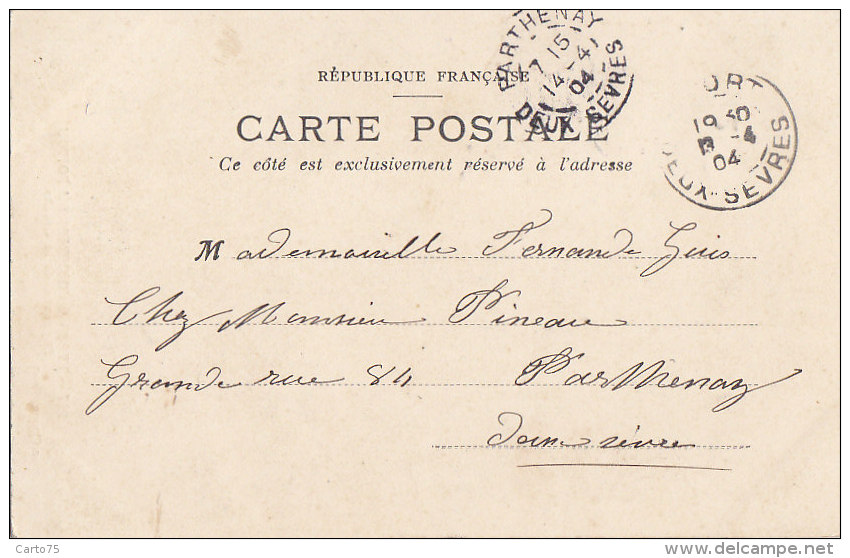 PARTHENAY
7 15
14 -4
04
DEUX-SEVRES
ORT
19 30
-4
04
DEUX-SEVRES
RÉPUBLIQUE FRANÇAISE
CARTE POSTALE
Ce côté est exclusivement réservé à l'adresse
Mademoiselle Fernande Guis
Chez Monsieur Pineau
Grande rue 84 Parthenay
deux sèvre
Carto75
delcampe.net